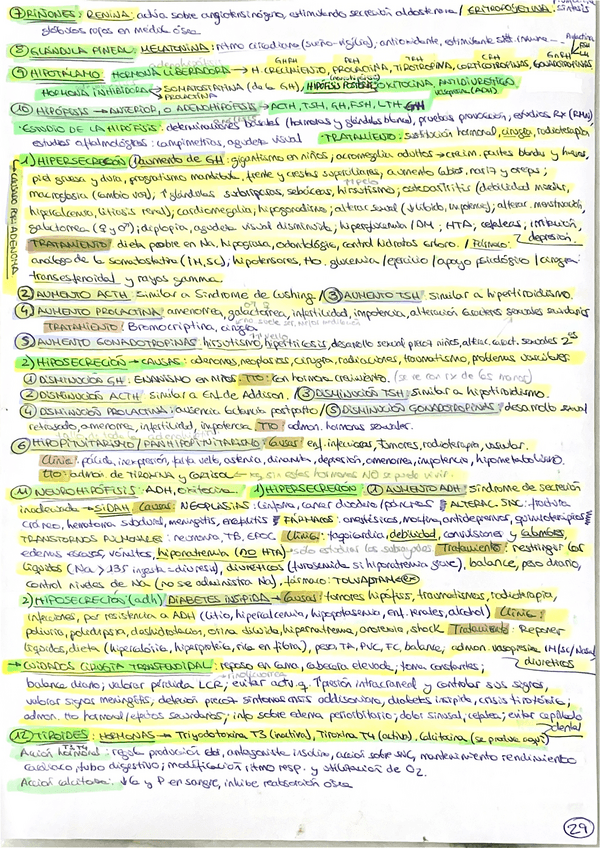 ⑦ RIÑONES: RENINA: actúa sobre angiotensinógeno, estimulando secreción aldosterona / ERITROPOYETINA: síntesis
glóbulos rojos en médula ósea
⑧ GLÁNDULA PINEAL: MELATONINA: ritmo circadiano (sueño-vigilia), antioxidante, estimulante sist. inmune
⑨ HIPOTÁLAMO: HORMONA LIBERADORA → H. CRECIMIENTO, PROLACTINA, TIROTROPINA, CORTICOTROPINAS, GONADOTROPINAS
HORMONA INHIBIDORA → SOMATOSTATINA (de la GH) HIPÓFISIS POSTERIOR: OXITOCINA, ANTIDIURÉTICO
PROLACTINA vasopresina (ADH)
⑩ HIPÓFISIS → ANTERIOR, O ADENOHIPÓFISIS → ACTH, TSH, GH, FSH, LTH
·ESTUDIO DE LA HIPÓFISIS: determinaciones basales (hormonas y glándulas blanco), pruebas provocación, estudios RX (RMN)
estudios oftalmológicos: campimetrías, agudeza visual TRATAMIENTO: sustitución hormonal, cirugía, radioterapia
CAUSADO POR: ADENOMA
1) HIPERSECRECIÓN ① aumento de GH: gigantismo en niños, acromegalia adultos → crecim. partes blandas y huesos,
piel grasa y dura, prognatismo mandíbula, frente y crestas superciliares, aumento labios, nariz y orejas;
macroglosia (cambio voz), ↑ glándulas sudoríparas, sebáceas, hirsutismo; osteoartritis (debilidad músculos,
hipercalcemia, litiasis renal); cardiomegalia, hipogonadismo; alterac. sexual (↓ líbido, impotencia), alterac. menstruación,
galactorrea (♀ y ♂); diplopia, agudeza visual disminuida, hiperglucemia / DM; HTA, cefaleas; irritación,
depresión.
TRATAMIENTO: dieta pobre en Na, hipograsa, odontólogo, control hidratos carbono. / Fármaco:
análogo de la somatostatina (IM, SC); hipotensores, tto. glucemia / ejercicio / apoyo psicológico / cirugía
transesfenoidal y rayos gamma.
② AUMENTO ACTH: similar a Síndrome de Cushing / ③ AUMENTO TSH: similar a hipertiroidismo.
④ AUMENTO PROLACTINA: amenorrea, galactorrea, infertilidad, impotencia, alteración caracteres sexuales secundarios
TRATAMIENTO: Bromocriptina, cirugía.
⑤ AUMENTO GONADOTROPINAS: hirsutismo, hipertricosis, desarrollo sexual precoz niños, alterac. caract. sexuales 2os
2) HIPOSECRECIÓN → CAUSAS: adenomas, neoplasias, cirugía, radiaciones, traumatismo, problemas vasculares.
① DISMINUCIÓN GH: ENANISMO en niños. TTO: con hormona crecimiento.
② DISMINUCIÓN ACTH: similar a Enf. de Addison. / ③ DISMINUCIÓN TSH: similar a hipotiroidismo.
④ DISMINUCIÓN PROLACTINA: ausencia lactancia postparto / ⑤ DISMINUCIÓN GONADOTROPINAS: desarrollo sexual
retrasado, amenorrea, infertilidad, impotencia TTO: admon. hormonas sexuales.
⑥ HIPOPITUITARISMO / PANHIPOPITUITARISMO: Causas: enf. infecciosas, tumores, radioterapia, vascular.
Clínica: palidez, inexpresión, falta vello, astenia, depresión, amenorrea, impotencia, hipometabolismo.
TTO: admon. de TIROXINA y CORTISOL ← xq sin estas hormonas NO se puede vivir.
⑪ NEUROHIPÓFISIS: ADH, oxitocina. 1) HIPERSECRECIÓN ① AUMENTO ADH: síndrome de secreción
inadecuada → SIADH Causas: NEOPLASIAS: linfoma, cáncer duodeno/páncreas ALTERAC. SNC: fractura
cráneo, hematoma subdural, meningitis, encefalitis FÁRMACOS: anestésicos, morfina, antidepresivos, quimioterápicos
TRANSTORNOS PULMONARES: neumonía, TB, EPOC. Clínica: taquicardia, debilidad, convulsiones y calambres,
edemas escasos, vómitos, hiponatremia (NO HTA) → sólo estudiar los subrayados. Tratamiento: restringir los
líquidos (Na >135 ingesta = diuresis), DIURÉTICOS (furosemida si hiponatremia grave), balance, peso diario,
control niveles de Na (no se administra Na), fármaco: TOLVAPTAN
2) HIPOSECRECIÓN (adh) DIABETES INSÍPIDA → Causas: tumores hipófisis, traumatismos, radioterapia,
infecciones, por resistencia a ADH (litio, hipercalcemia, hipopotasemia, enf. renales, alcohol) Clínica:
poliuria, polidipsia, deshidratación, orina diluida, hipernatremia, anorexia, shock Tratamiento: Reponer
líquidos, dieta (hipercalórica, hiperproteica, rica en fibra), peso, TA, PVC, FC, balance; admon. vasopresina IM/SC/Nasal,
diuréticos
→ CUIDADOS CIRUGÍA TRANSFENOIDAL: reposo en cama, cabecera elevada; toma constantes;
balance diario; valorar pérdida LCR; evitar activ. q ↑ presión intracraneal y controlar sus signos,
valorar signos meningitis, detección precoz síntomas crisis addisoniana, diabetes insípida, crisis tirotóxica;
admon. tto hormonal / efectos secundarios; info sobre edema periorbitario; dolor sinusal, cefalea; evitar cepillado
dental
⑫ TIROIDES: HORMONAS → Triyodotoxina T3 (inactiva), Tiroxina T4 (activa), calcitonina (se produce aquí)
T3 T4
Acción hormonal: regula producción, antagonista insulina, acción sobre SNC, mantenimiento rendimiento
cardiaco, tubo digestivo; modificación ritmo resp. y utilización de O2.
Acción calcitonina: ↓ Ca y P en sangre, inhibe reabsorción ósea
29